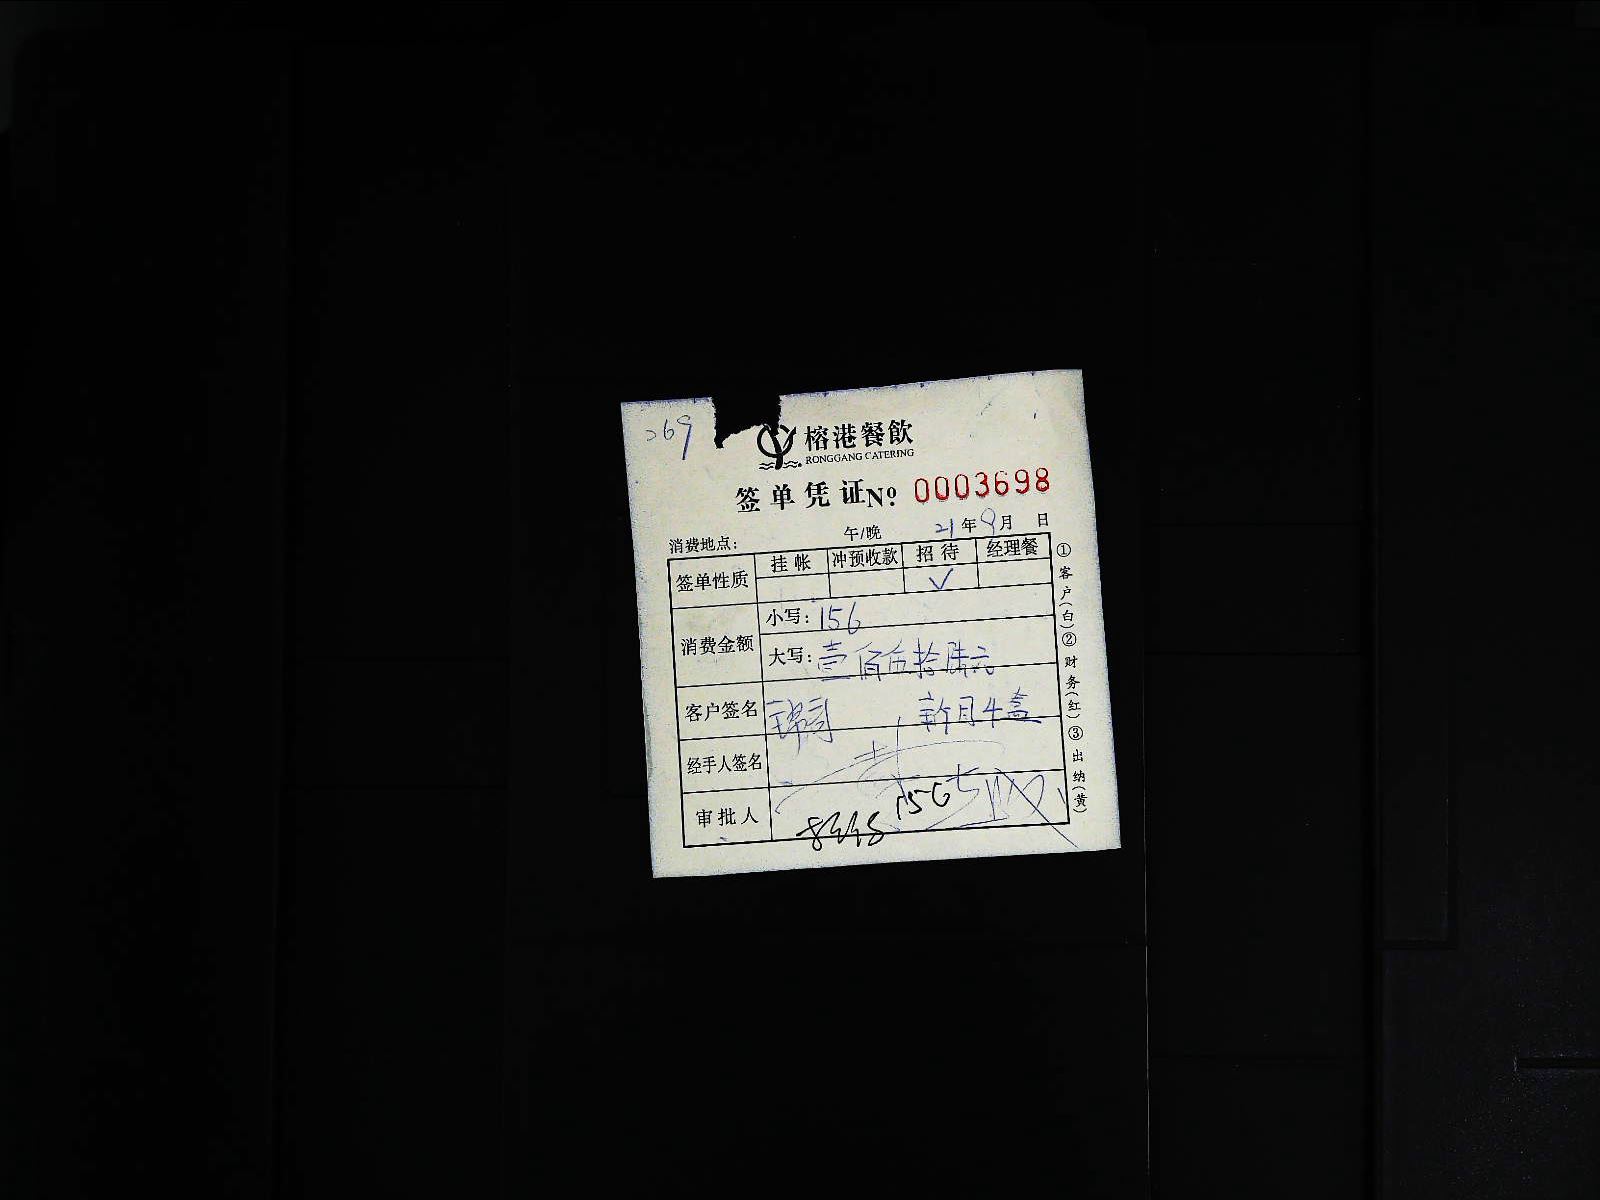 269
榕港餐飲
RONGGANG CATERING
签单凭证 No. 0003698
消费地点: 午/晚 21年9月 日
签单性质 挂帐 冲预收款 招待 经理餐
✓
消费金额 小写: 156
大写: 壹佰伍拾陆元
客户签名 新月4盒
经手人签名
审批人 156
①客户(白)②财务(红)③出纳(黄)